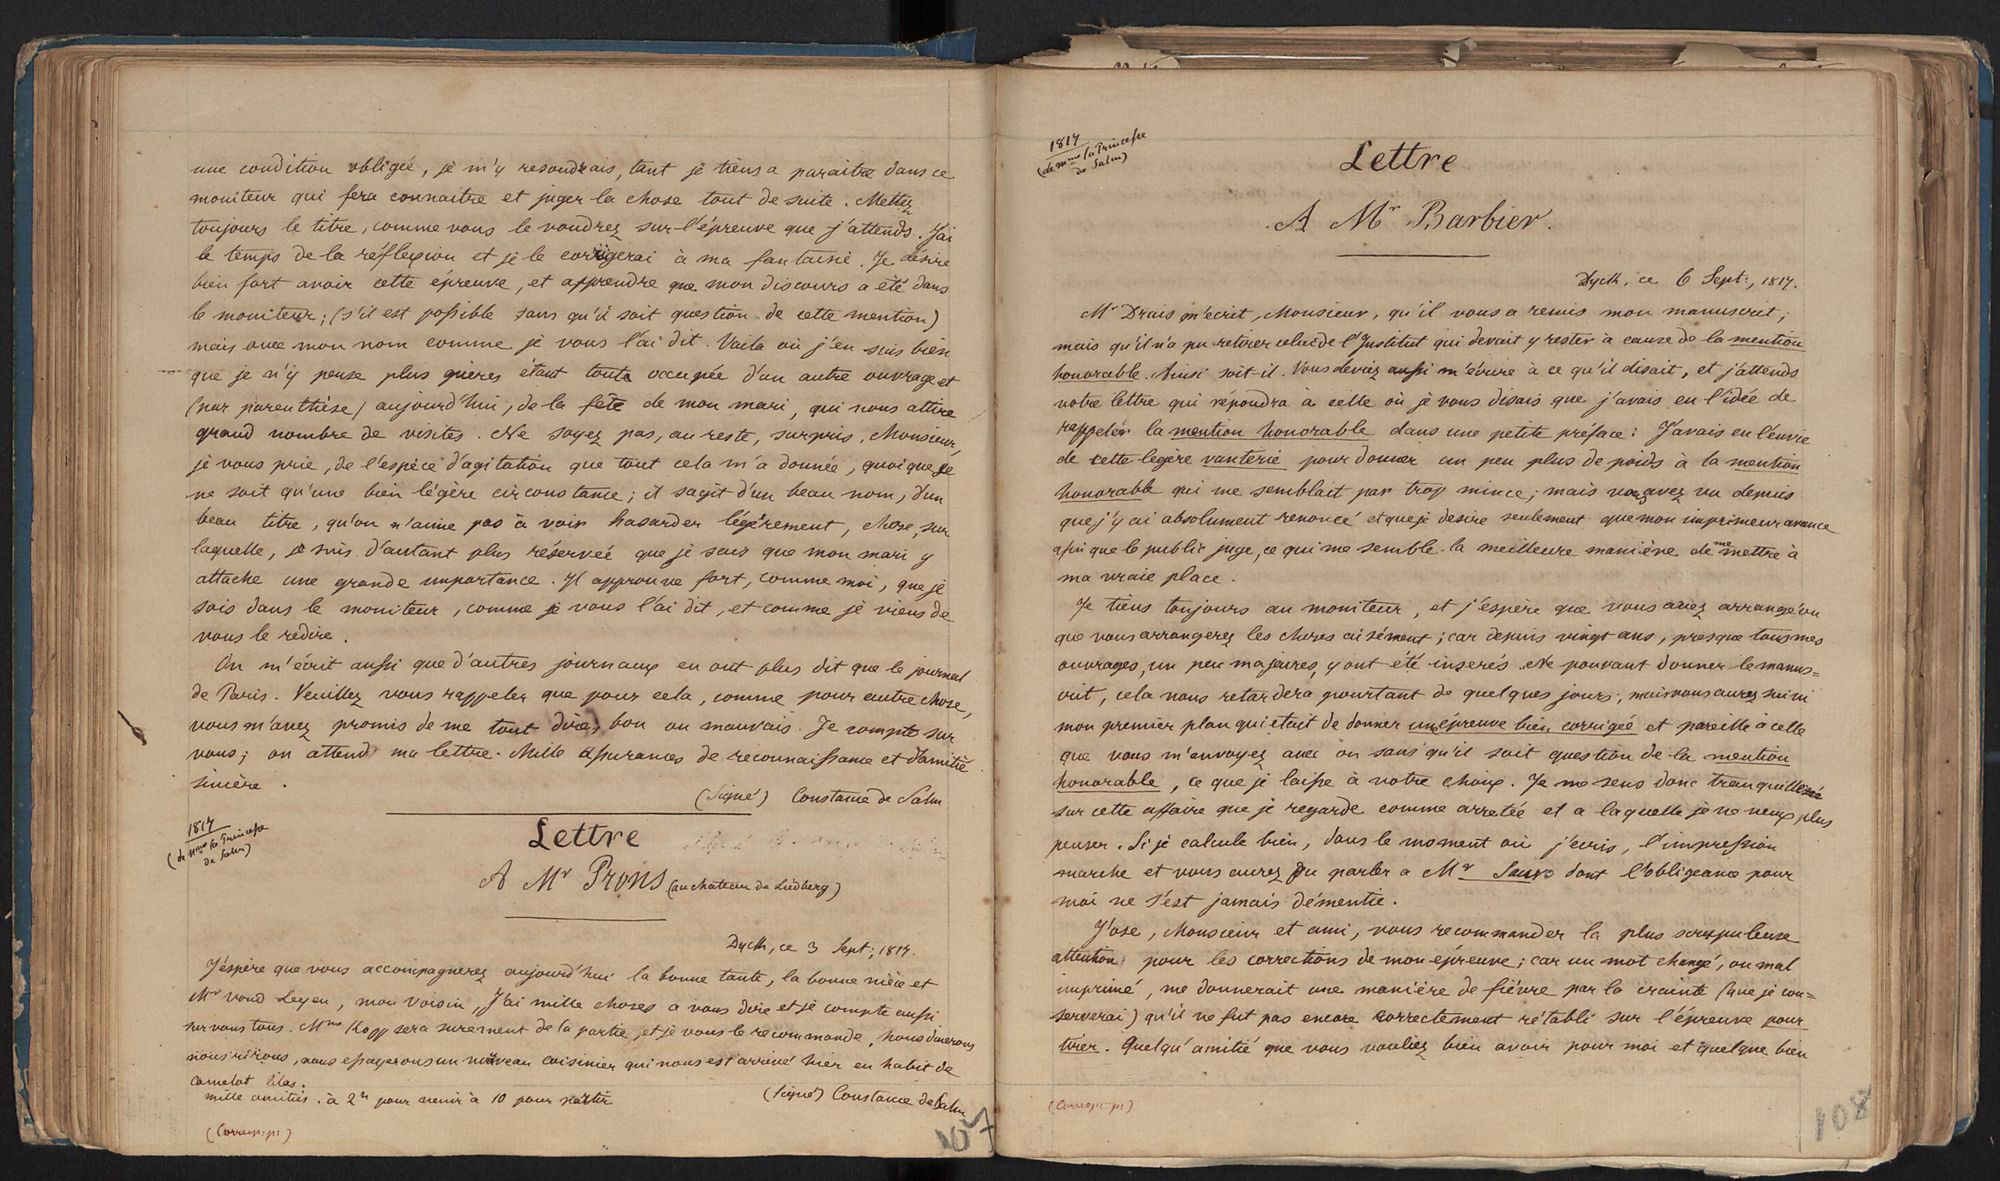 une condition obligée, je m'y resoudrais, tant je tiens a paraitre dans ce
moniteur qui fera connaitre et juger la chose tout de suite. Mettez
toujours le titre, comme vous le voudrez sur l'épreuve que j'attends. J'ai
le temps de la réflexion et je le corrigerai à ma fantaisie. Je désire
bien fort avoir cette épreuve, et apprendre que mon discours a été dans
le moniteur; (s'il est possible sans qu'il soit question de cette mention)
mais avec mon nom comme je vous l'ai dit. Voila où j'en suis bien
que je n'y pense plus guères étant toute occupée d'un autre ouvrage et
(par parenthèse) aujourd'hui, de la fête de mon mari, qui nous attire
grand nombre de visites. Ne soyez pas, au reste, surpris, Monsieur,
je vous prie, de l'espèce d'agitation que tout cela m'a donnée, quoique ce
ne soit qu'une bien légère circonstance; il s'agit d'un beau nom, d'un
beau titre, qu'on n'aime pas à voir hasarder légérement, chose, sur
laquelle, je suis d'autant plus réservée que je sais que mon mari y
attache une grande importance. Il approuve fort, comme moi, que je
sois dans le moniteur, comme je vous l'ai dit, et comme je viens de
vous le redire.
On m'écrit aussi que d'autres journaux en ont plus dit que le journal
de Paris. Veuillez vous rappeler que pour cela, comme pour autre chose,
vous m'avez promis de me tout dire, bon ou mauvais. Je compte sur
vous; on attend ma lettre. Mille assurances de reconnaissance et d'amitié
sincère.
(Signé) Constance de Salm
1817
(de Mme la Princesse
de Salm)
Lettre
A Mr Prons (au château de Liedberg)
Dyck, ce 3 Sept:, 1817.
J'espère que vous accompagnerez aujourd'hui la bonne tante, la bonne nièce et
Mr vond Leyen, mon voisin, J'ai mille choses a vous dire et je compte aussi
sur vous tous. Mme Kopp sera surement de la partie, et je vous le recommande, nous dinerons
nous rirons, nous essayerons un nouveau cuisinier qui nous est arrivé hier en habit de
camelot lilas.
mille amitiés. à 2h pour venir à 10 pour partir
(Signé) Constance de Salm
(Corresp: pi)
107
1817
(de Mme la Princesse
de Salm)
Lettre
A Mr Barbier.
Dyck, ce 6 Sept:, 1817.
Mr Drais m'écrit, Monsieur, qu'il vous a remis mon manuscrit;
mais qu'il n'a pu retirer celui de l'Institut qui devait y rester à cause de la mention
honorable. Ainsi soit-il. Vous deviez aussi m'écrire à ce qu'il disait, et j'attends
votre lettre qui repondra à celle où je vous disais que j'avais eu l'idée de
rappeler la mention honorable dans une petite préface: J'avais eu l'envie
de cette legère vanterie pour donner un peu plus de poids à la mention
honorable qui me semblait par trop mince; mais vous avez vu depuis
que j'y ai absolument renoncé et que je desire seulement que mon imprimeur avance
afin que le public juge, ce qui me semble la meilleure manière de me mettre à
ma vraie place.
Je tiens toujours au moniteur, et j'espère que vous avez arrangé ou
que vous arrangerez les choses aisément; car depuis vingt ans, presque tous mes
ouvrages, un peu majeures, y ont été inserés. Ne pouvant donner le manus=
crit, cela nous retardera pourtant de quelques jours; mais vous aurez suivi
mon premier plan qui était de donner une épreuve bien corrigée et pareille à celle
que vous m'envoyez avec ou sans qu'il soit question de la mention
honorable, ce que je laisse à votre choix. Je me sens donc tranquillisée
sur cette affaire que je regarde comme arretée et a laquelle je ne veux plus
penser. Si je calcule bien, dans le moment où j'ecris, l'impression
marche et vous aurez pu parler a Mr Sauvo dont l'obligeance pour
moi ne s'est jamais démentie.
J'ose, Monsieur et ami, vous recommander la plus scrupuleuse
attention pour les corrections de mon épreuve; car un mot changé, ou mal
imprimé, me donnerait une manière de fièvre par la crainte (que je con=
serverai) qu'il ne fut pas encore correctement rétabli sur l'épreuve pour
tirer. Quelqu'amitié que vous vouliez bien avoir pour moi et quelque bien
(Corresp: pi)
108